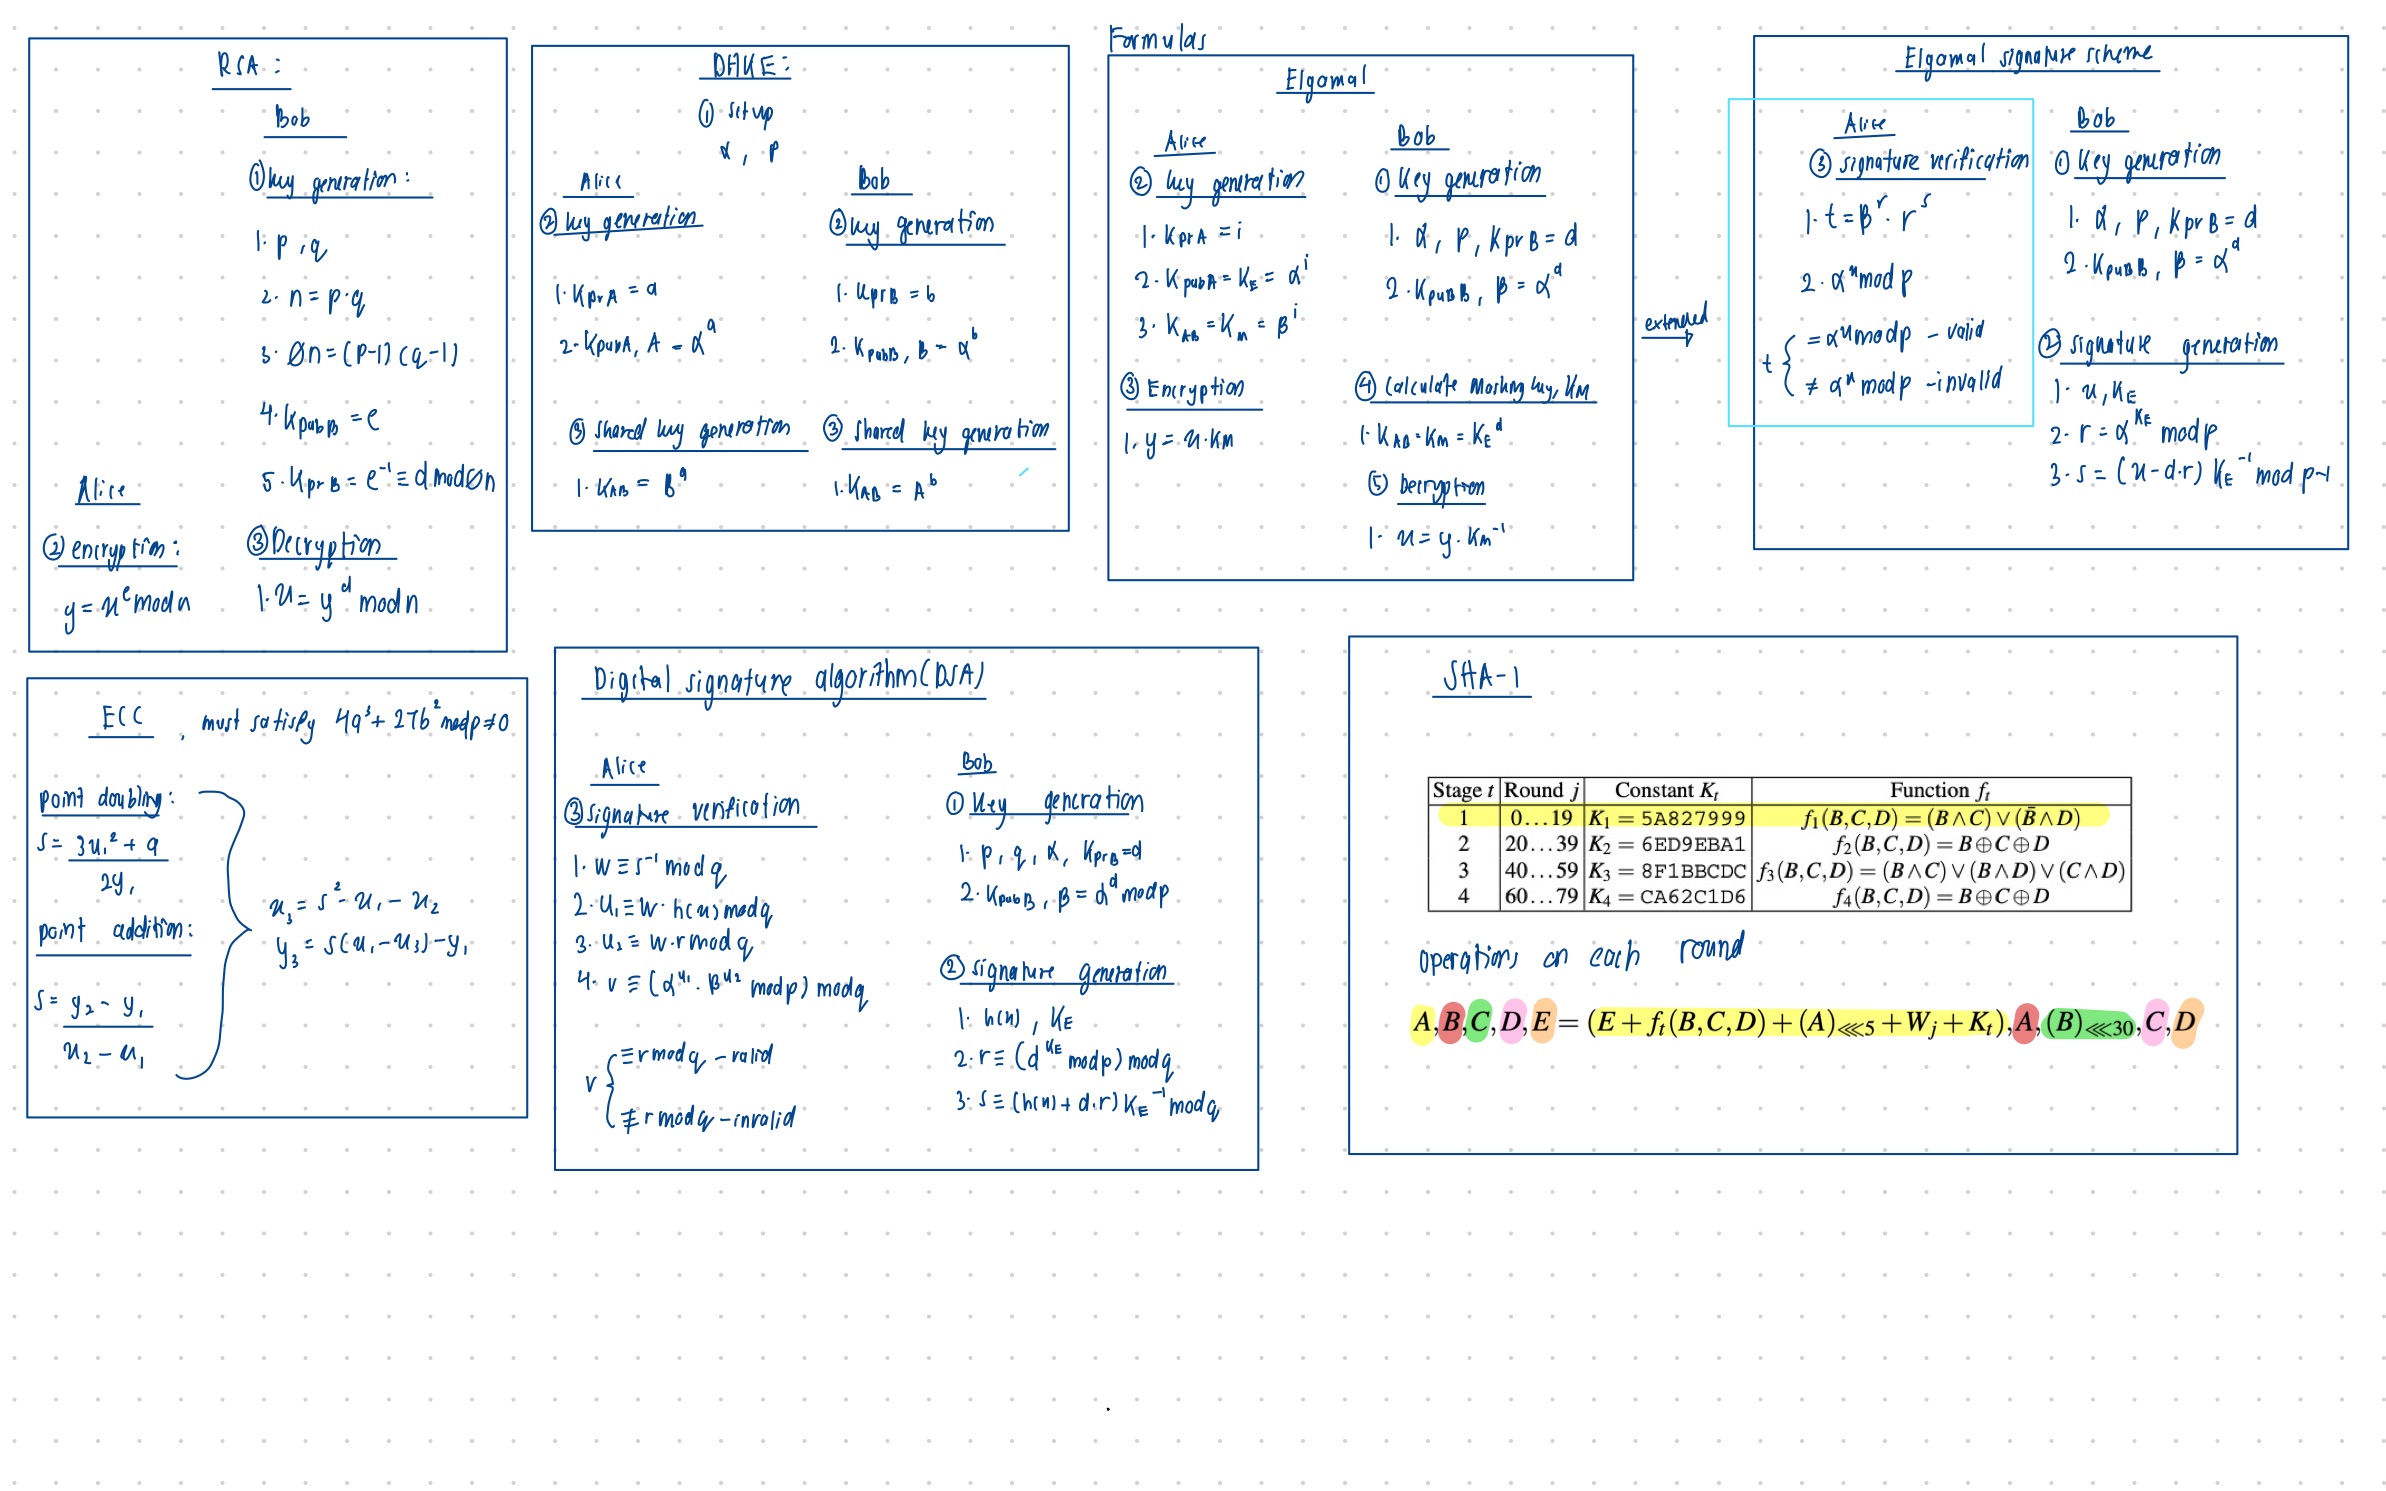 Formulas
RSA :
Bob
① key generation :
1. p , q
2. n = p·q
3. Øn = (p-1) (q-1)
4. KpubB = e
5. KprB = e⁻¹ ≡ d mod Øn
Alice
② encryption :
y = xᵉ mod n
③ Decryption
1. x = yᵈ mod n
DHKE :
① setup
α , p
Alice
② key generation
1. KprA = a
2. KpubA, A = αᵃ
③ shared key generation
1. KAB = Bᵃ
Bob
② key generation
1. KprB = b
2. KpubB, B = αᵇ
③ shared key generation
1. KAB = Aᵇ
Elgamal
Alice
② key generation
1. KprA = i
2. KpubA = KE = αⁱ
3. KAB = Km = βⁱ
③ Encryption
1. y = x·Km
Bob
① Key generation
1. α, p, KprB = d
2. KpubB, β = αᵈ
④ Calculate Masking key, KM
1. KAB = Km = KEᵈ
⑤ Decryption
1. x = y·Km⁻¹
extended
Elgamal signature scheme
Alice
③ signature verification
1. t = βʳ · rˢ
2. αˣ mod p
t { = αˣ mod p - valid
≠ αˣ mod p - invalid
Bob
① Key generation
1. α, p, KprB = d
2. KpubB, β = αᵈ
② signature generation
1. x, KE
2. r = α^KE mod p
3. s = (x - d·r) KE⁻¹ mod p-1
ECC , must satisfy 4a³ + 27b² mod p ≠ 0
point doubling :
s = 3x₁² + a
2y₁
point addition :
s = y₂ - y₁
x₂ - x₁
x₃ = s² - x₁ - x₂
y₃ = s(x₁ - x₃) - y₁
Digital signature algorithm (DSA)
Alice
③ signature verification
1. w ≡ s⁻¹ mod q
2. U₁ ≡ w · h(x) mod q
3. U₂ ≡ w·r mod q
4. v ≡ (α^u₁ · β^u₂ mod p) mod q
v { ≡ r mod q - valid
≢ r mod q - invalid
Bob
① Key generation
1. p, q, α, KprB = d
2. KpubB, β = αᵈ mod p
② signature generation
1. h(x) , KE
2. r ≡ (α^KE mod p) mod q
3. s ≡ (h(x) + d·r) KE⁻¹ mod q
SHA-1
Stage t Round j Constant Kₜ Function fₜ
1 0...19 K₁ = 5A827999 f₁(B,C,D) = (B∧C)∨(B̄∧D)
2 20...39 K₂ = 6ED9EBA1 f₂(B,C,D) = B⊕C⊕D
3 40...59 K₃ = 8F1BBCDC f₃(B,C,D) = (B∧C)∨(B∧D)∨(C∧D)
4 60...79 K₄ = CA62C1D6 f₄(B,C,D) = B⊕C⊕D
operations on each round
A,B,C,D,E = (E + fₜ(B,C,D) + (A)⋘5 + Wⱼ + Kₜ),A,(B)⋘30,C,D